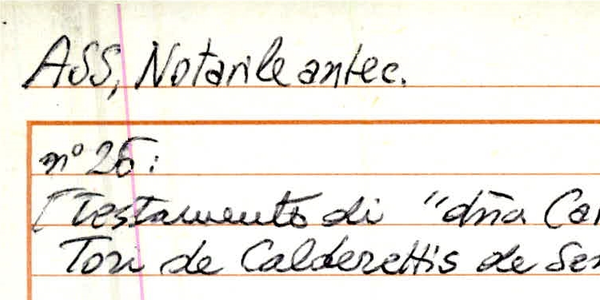 ASS, Notarile antec.
n° 26:
[Testamento di "dña Ca
Tori de Calderettis de Se